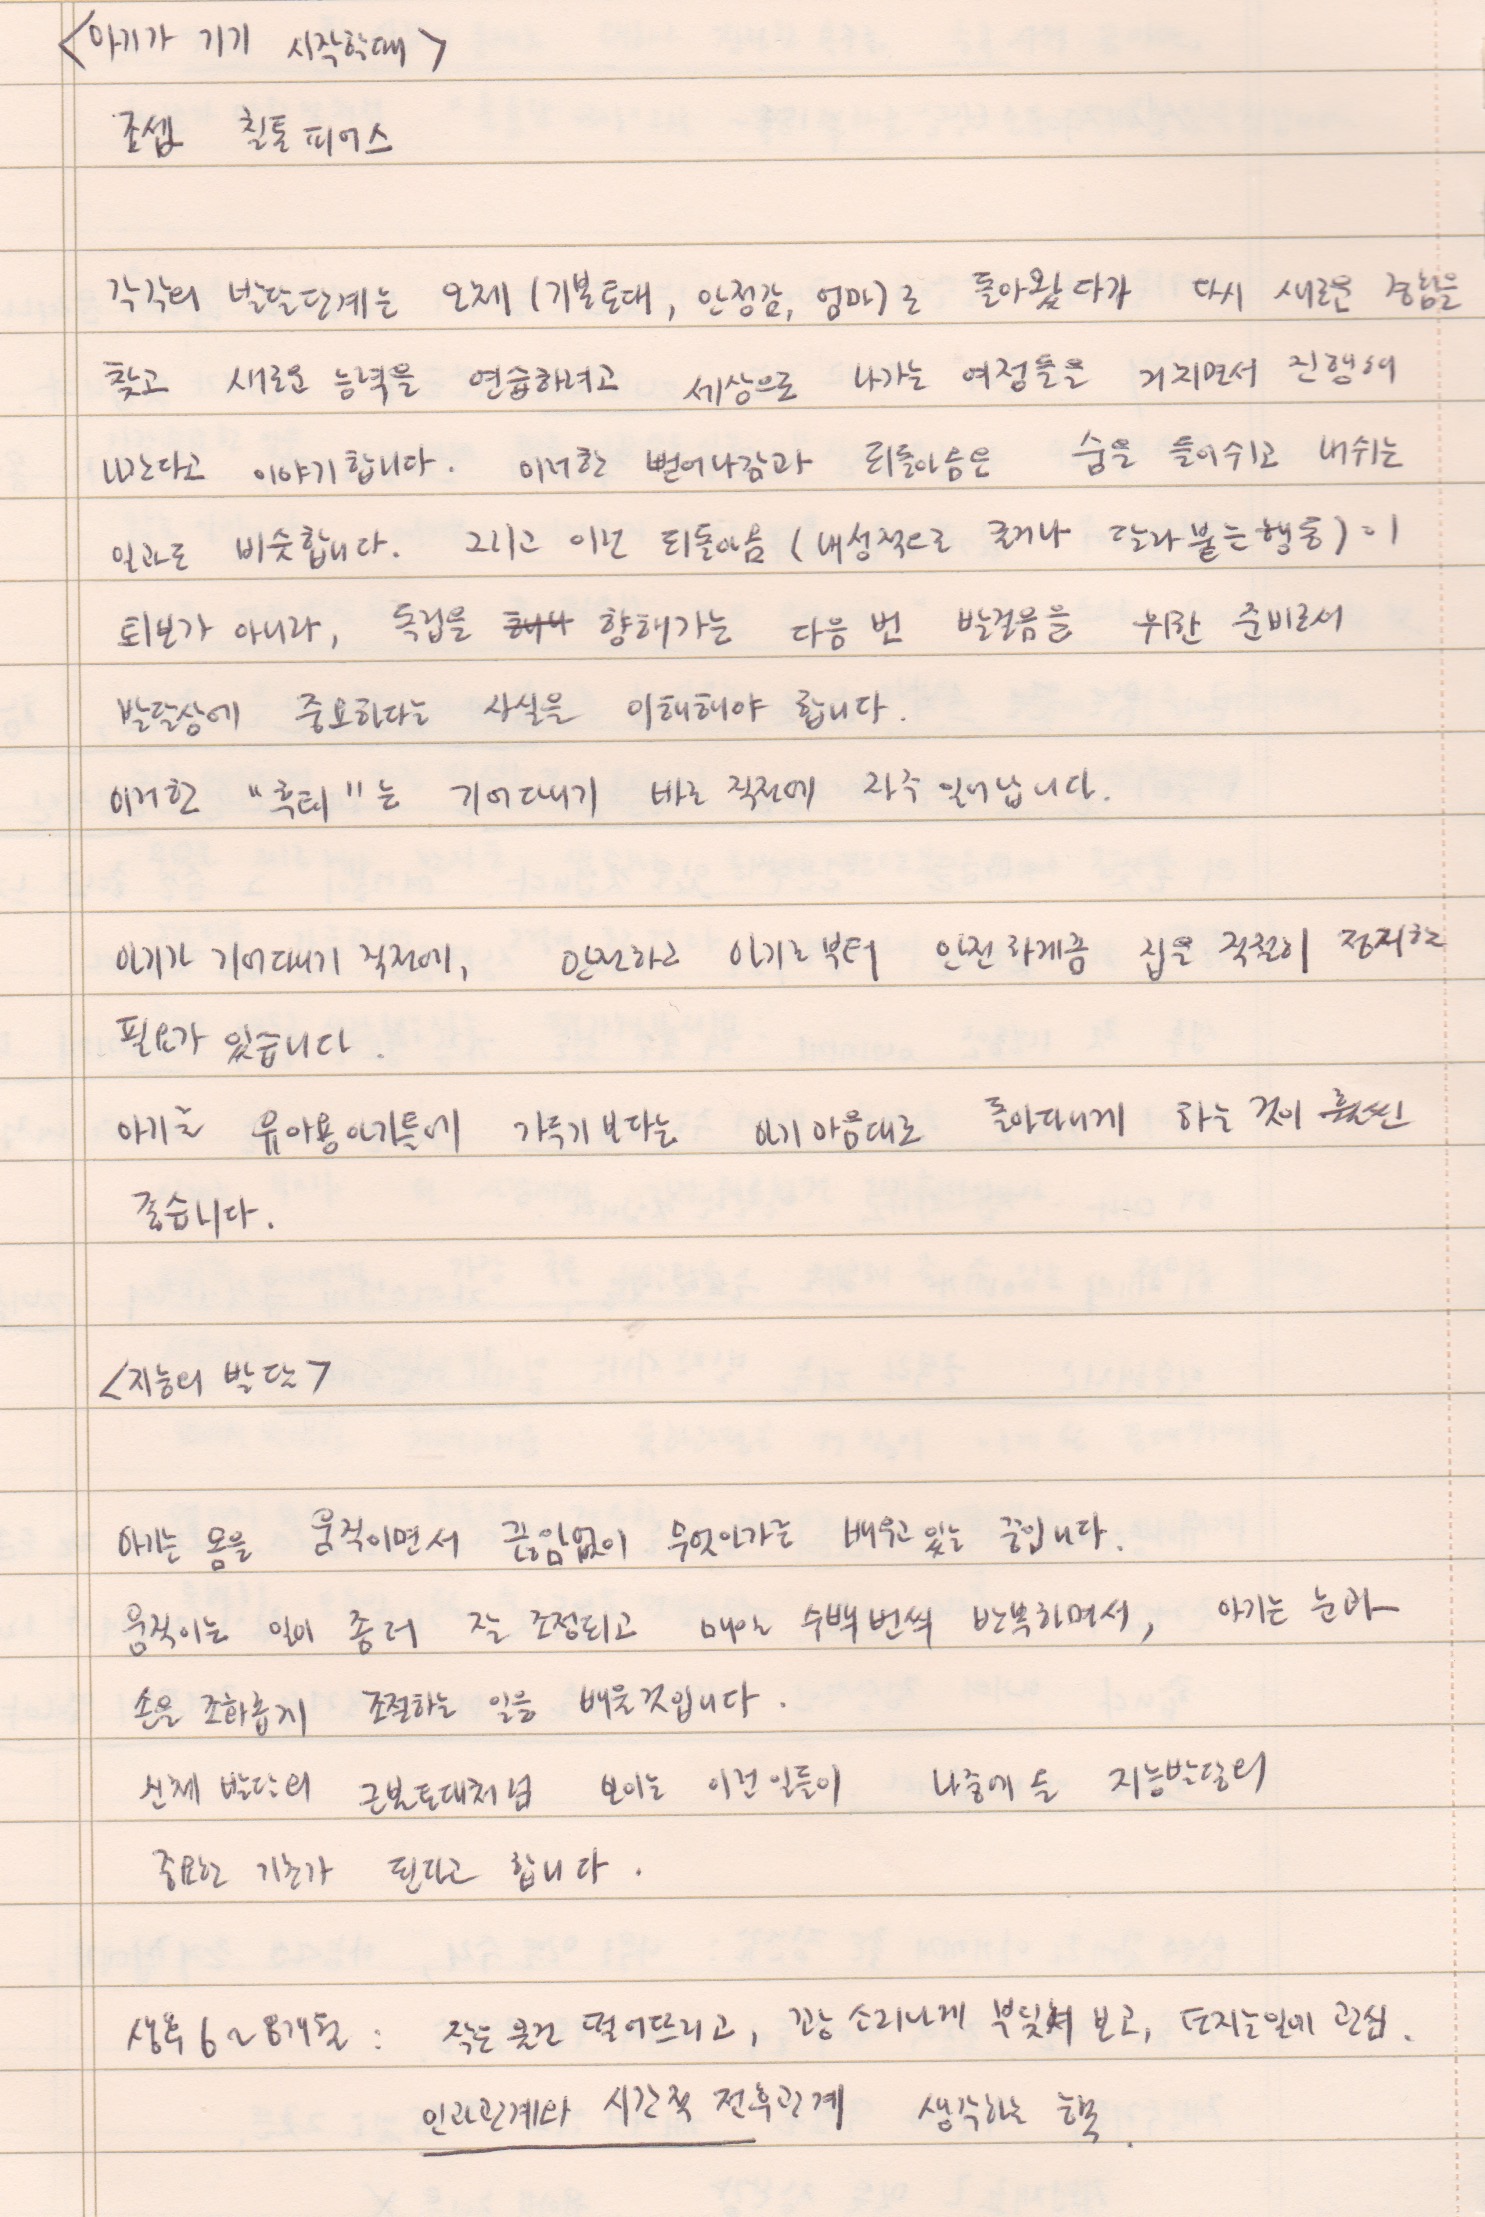 <아기가 기기 시작할때>
조셉 칠톤 피어스
각각의 발달단계는 모체 (기본토대, 안정감, 엄마)로 돌아왔다가 다시 새로운 경험을
찾고 새로운 능력을 연습하려고 세상으로 나가는 여정들을 거치면서 진행해
나간다고 이야기합니다. 이러한 뻗어나감과 되돌아옴은 숨을 들이쉬고 내쉬는
일과도 비슷합니다. 그리고 이런 되돌아옴 (내성적으로 굴거나 달라붙는행동)이
퇴보가 아니라, 독립을 향해가는 다음 번 발걸음을 위한 준비로서
발달상에 중요하다는 사실을 이해해야 합니다.
이러한 "후퇴"는 기어다니기 바로 직전에 자주 일어납니다.
아기가 기어다니기 직전에, 안전하고 아기로부터 안전하게끔 집을 적절히 정리할
필요가 있습니다.
아기를 유아용아기틀에 가두기보다는 아기 마음대로 돌아다니게 하는 것이 훨씬
좋습니다.
<지능의 발달>
아기는 몸을 움직이면서 끊임없이 무엇인가를 배우고 있는 중입니다.
움직이는 일이 좀 더 잘 조정되고 매일 수백번씩 반복하면서, 아기는 눈과
손을 조화롭게 조절하는 일을 배울것입니다.
신체 발달의 근본토대처럼 보이는 이런일들이 나중에 올 지능발달의
중요한 기초가 된다고 합니다.
생후 6~8개월 : 작은 물건 떨어뜨리고, 꽝 소리나게 부딪쳐 보고, 던지는일에 관심.
인과관계와 시간적 전후관계 생각하는 능력.